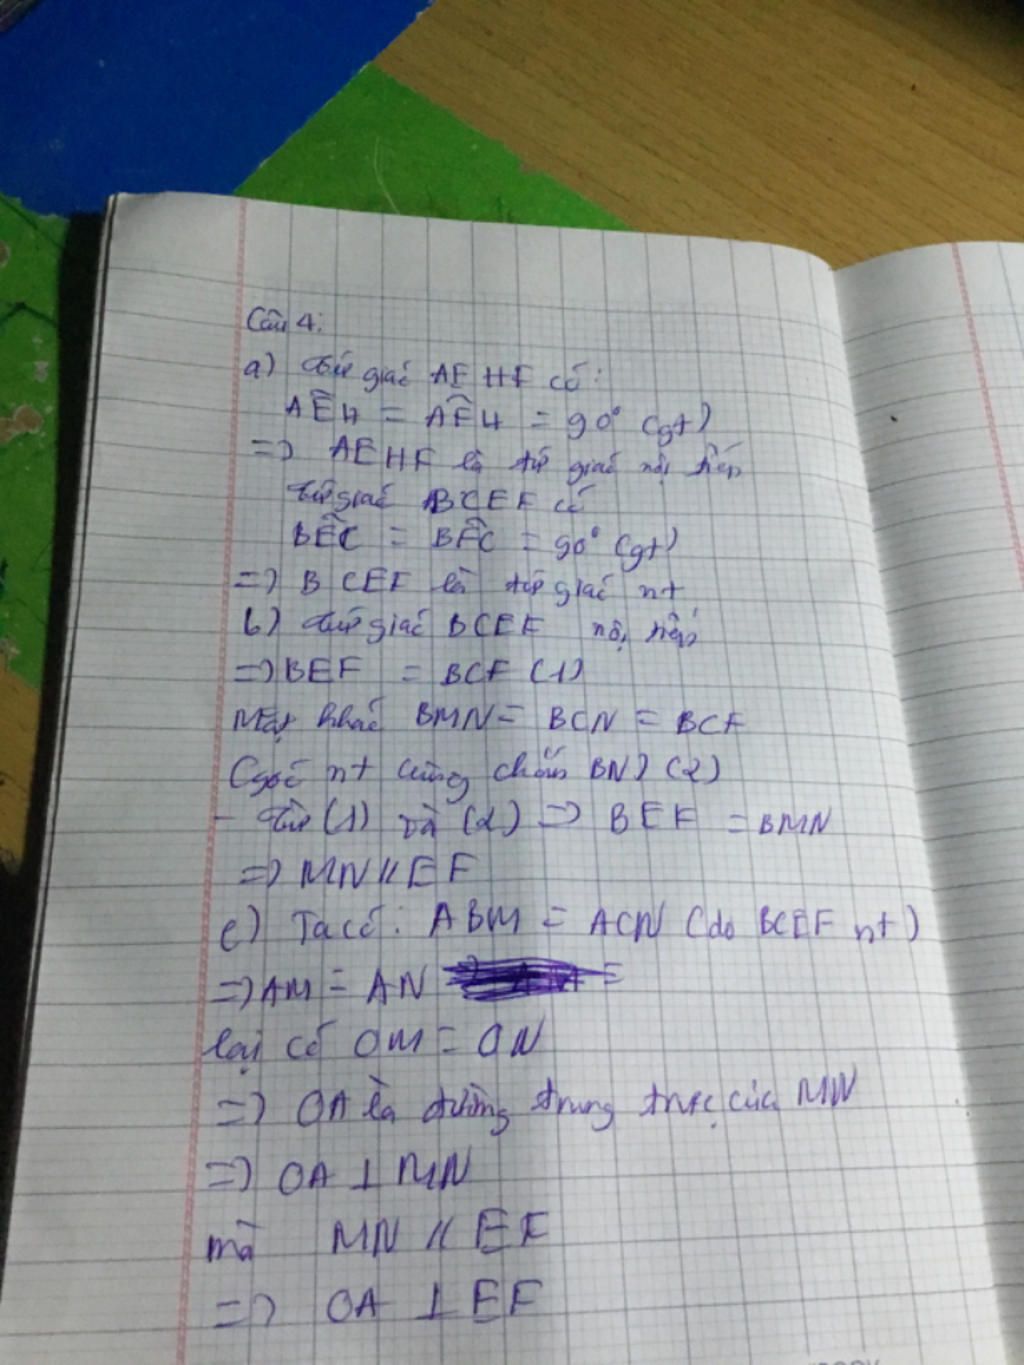 Câu 4:
a) Tứ giác AEHF có:
AÊH = AF̂H = 90° (gt)
=> AEHF là tứ giác nội tiếp
Tứ giác BCEF có
BÊC = BF̂C = 90° (gt)
=> BCEF là tứ giác nt
b) Tứ giác BCEF nội tiếp
=> BEF = BCF (1)
Mặt khác BMN = BCN = BCF
(góc nt cùng chắn BN) (2)
- Từ (1) và (2) => BEF = BMN
=> MN // EF
c) Ta có: ABM = ACN (do BCEF nt)
=> AM = AN
lại có OM = ON
=> OA là đường trung trực của MN
=> OA ⊥ MN
mà MN // EF
=> OA ⊥ EF